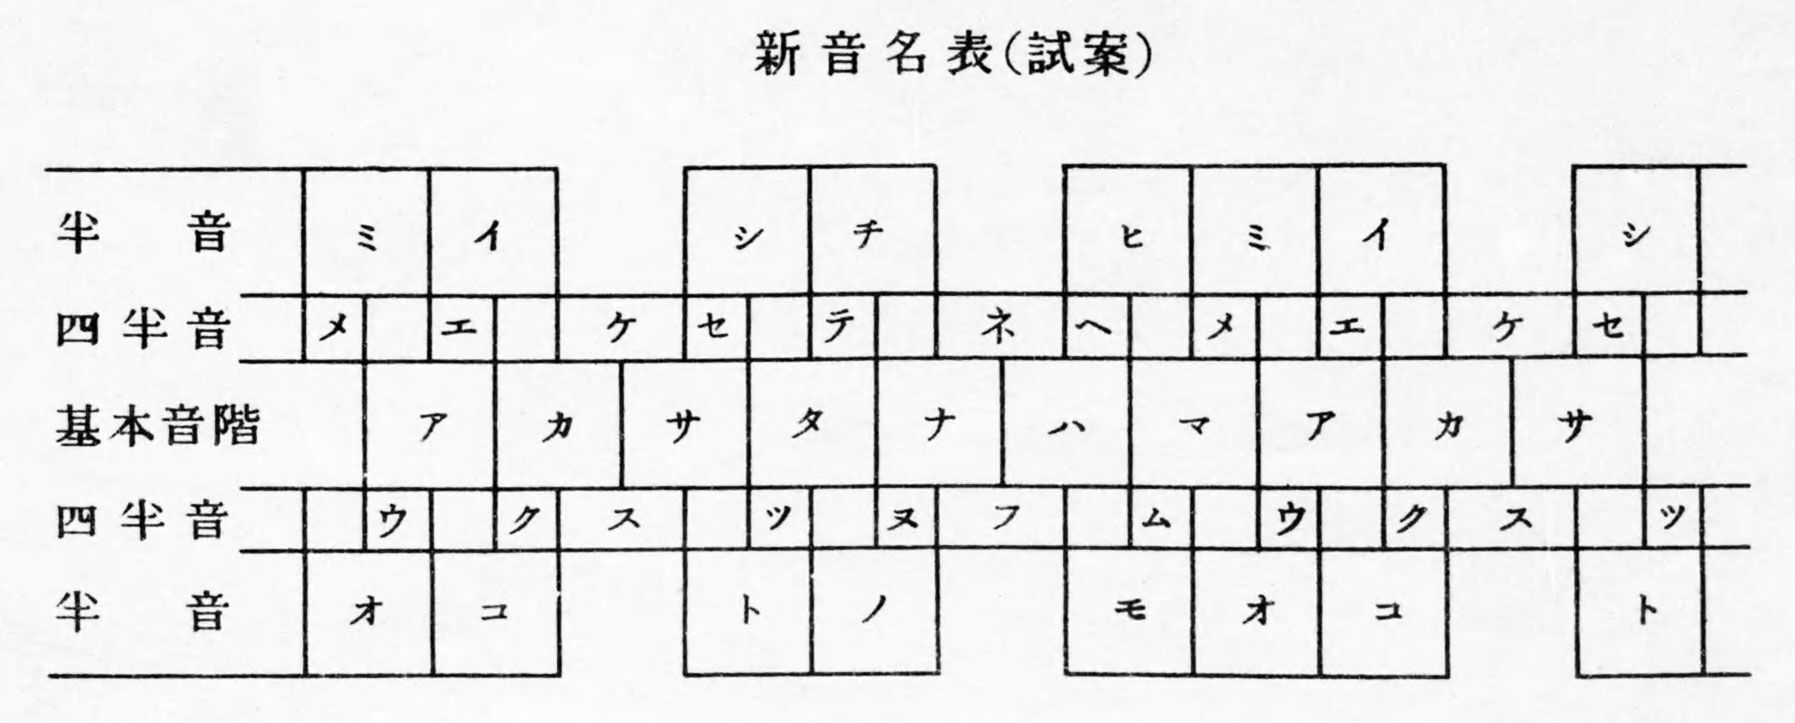 新音名表(試案)
半音 ミ イ シ チ ヒ ミ イ シ
四半音 メ エ ケ セ テ ネ ヘ メ エ ケ セ
基本音階 ア カ サ タ ナ ハ マ ア カ サ
四半音 ウ ク ス ツ ヌ フ ム ウ ク ス ツ
半音 オ コ ト ノ モ オ コ ト